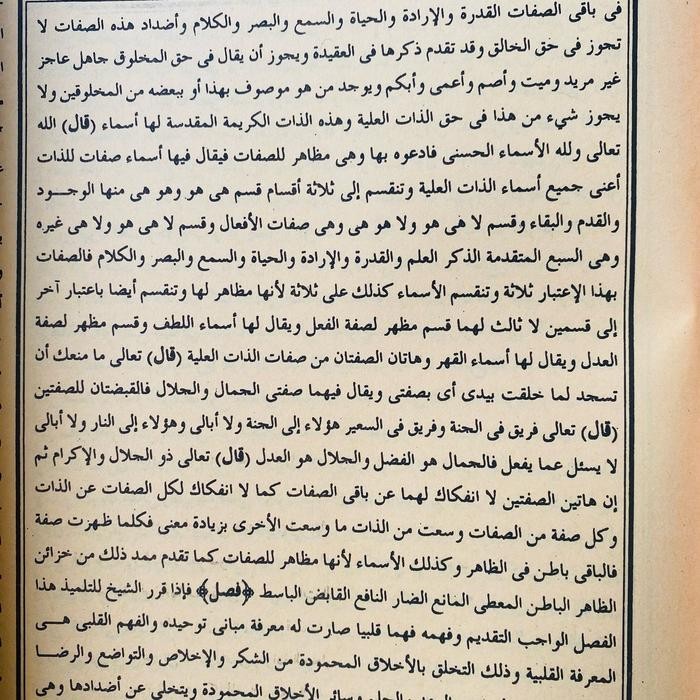 فى باقى الصفات القدرة والإرادة والحياة والسمع والبصر والكلام وأضداد هذه الصفات لا
تجوز فى حق الخالق وقد تقدم ذكرها فى العقيدة ويجوز أن يقال فى حق المخلوق جاهل عاجز
غير مريد وميت وأصم وأعمى وأبكم ويوجد من هو موصوف بهذا أو ببعضه من المخلوقين ولا
يجوز شيء من هذا فى حق الذات العلية وهذه الذات الكريمة المقدسة لها أسماء (قال) الله
تعالى ولله الأسماء الحسنى فادعوه بها وهى مظاهر للصفات فيقال فيها أسماء صفات للذات
أعنى جميع أسماء الذات العلية وتنقسم إلى ثلاثة أقسام قسم هى هو وهو هى منها الوجود
والقدم والبقاء وقسم لا هى هو ولا هو هى وهى صفات الأفعال وقسم لا هى هو ولا هى غيره
وهى السبع المتقدمة الذكر العلم والقدرة والإرادة والحياة والسمع والبصر والكلام فالصفات
بهذا الإعتبار ثلاثة وتنقسم الأسماء كذلك على ثلاثة لأنها مظاهر لها وتنقسم أيضا باعتبار آخر
إلى قسمين لا ثالث لهما قسم مظهر لصفة الفعل ويقال لها أسماء اللطف وقسم مظهر لصفة
العدل ويقال لها أسماء القهر وهاتان الصفتان من صفات الذات العلية (قال) تعالى ما منعك أن
تسجد لما خلقت بيدى أى بصفتى ويقال فيهما صفتى الجمال والجلال فالقبضتان للصفتين
(قال) تعالى فريق فى الجنة وفريق فى السعير هؤلاء إلى الجنة ولا أبالى وهؤلاء إلى النار ولا أبالى
لا يسئل عما يفعل فالجمال هو الفضل والجلال هو العدل (قال) تعالى ذو الجلال والإكرام ثم
إن هاتين الصفتين لا انفكاك لهما عن باقى الصفات كما لا انفكاك لكل الصفات عن الذات
وكل صفة من الصفات وسعت من الذات ما وسعت الأخرى بزيادة معنى فكلما ظهرت صفة
فالباقى باطن فى الظاهر وكذلك الأسماء لأنها مظاهر للصفات كما تقدم ممد ذلك من خزائن
الظاهر الباطن المعطى المانع الضار النافع القابض الباسط ﴿فصل﴾ فإذا قرر الشيخ للتلميذ هذا
الفصل الواجب التقديم وفهمه فهما قلبيا صارت له معرفة مبانى توحيده والفهم القلبى هى
المعرفة القلبية وذلك التخلق بالأخلاق المحمودة من الشكر والإخلاص والتواضع والرضا
والحلم وسائر الأخلاق المحمودة ويتخلى عن أضدادها وهى